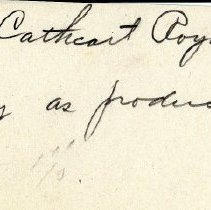 Cathcart Roy
y as produc